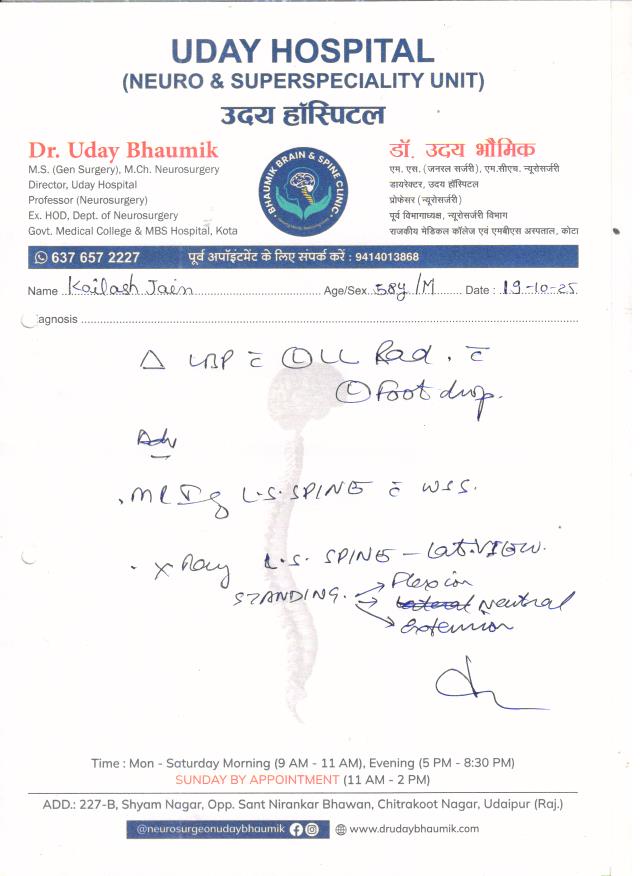 UDAY HOSPITAL
(NEURO & SUPERSPECIALITY UNIT)
उदय हॉस्पिटल
Dr. Uday Bhaumik
M.S. (Gen Surgery), M.Ch. Neurosurgery
Director, Uday Hospital
Professor (Neurosurgery)
Ex. HOD, Dept. of Neurosurgery
Govt. Medical College & MBS Hospital, Kota
BHAUMIK BRAIN & SPINE CLINIC
डॉ. उदय भौमिक
एम. एस. (जनरल सर्जरी), एम.सीएच. न्यूरोसर्जरी
डायरेक्टर, उदय हॉस्पिटल
प्रोफेसर (न्यूरोसर्जरी)
पूर्व विभागाध्यक्ष, न्यूरोसर्जरी विभाग
राजकीय मेडिकल कॉलेज एवं एमबीएस अस्पताल, कोटा
637 657 2227 पूर्व अपॉइंटमेंट के लिए संपर्क करें : 9414013868
Name Kailash Jain Age/Sex 58y/M Date : 19-10-25
agnosis
△ LBP c̄ Ⓛ LL Rad. c̄
Ⓛ Foot drop.
Adv
. MRI L.S. SPINE c̄ WSS.
. X Ray L.S. SPINE - Lat. VIEW.
STANDING. → Flexion
→ Neutral
→ Extension
Time : Mon - Saturday Morning (9 AM - 11 AM), Evening (5 PM - 8:30 PM)
SUNDAY BY APPOINTMENT (11 AM - 2 PM)
ADD.: 227-B, Shyam Nagar, Opp. Sant Nirankar Bhawan, Chitrakoot Nagar, Udaipur (Raj.)
@neurosurgeonudaybhaumik www.drudaybhaumik.com